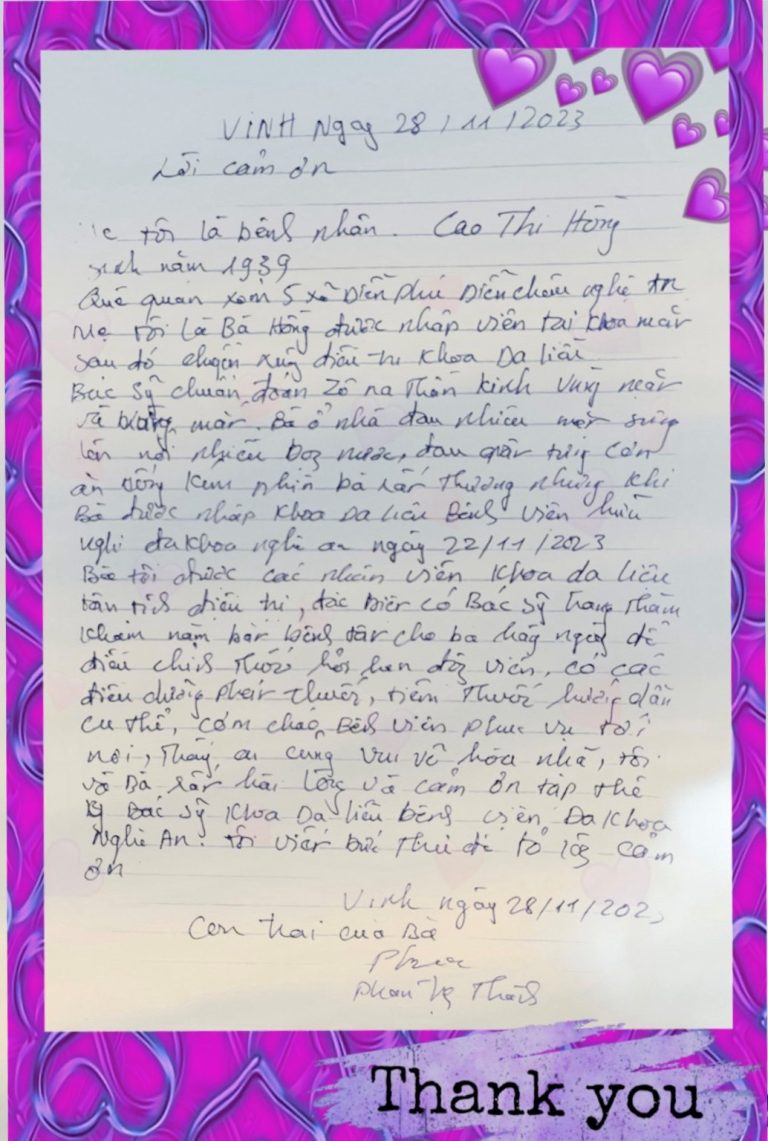 Vinh Ngày 28/11/2023
Lời cảm ơn
tôi là bệnh nhân. Cao Thị Hồng
sinh năm 1939
Quê quán xóm 5 xã Diễn phú Diễn châu nghệ An
Mẹ tôi là Bà Hồng được nhập viện tại khoa mắt
sau đó chuyển xuống điều trị Khoa Da liễu
Bác sỹ chuẩn đoán Zô na Thần kinh Vùng mắt
và mắt. Bà ở nhà đau nhiều mắt sưng
lên nổi nhiều bọng nước, đau giật từng cơn
ăn uống kém bà rất Thương nhưng khi
Bà được nhập Khoa Da liễu Bệnh viện hữu
nghị đa khoa nghệ an ngày 22/11/2023
Bà tôi được các nhân viên Khoa da liễu
tận tích điều trị, đặc Biệt có Bác sỹ Trang Thăm
Khám nắm bắt bệnh tật cho bà hằng ngày để
điều chỉnh Thuốc hỏi han động viên, có các
điều dưỡng phát thuốc, tiêm Thuốc hướng dẫn
cụ thể, cơm cháo Bệnh viện phục vụ tới
nơi, Thấy ai cũng vui vẻ hòa nhã, tôi
và Bà rất hài lòng và cảm ơn tập thể
Bác sỹ Khoa Da liễu bệnh viện Đa Khoa
Nghệ An. tôi viết bức Thư để tỏ lòng cảm
ơn
Vinh ngày 28/11/2023
Con trai của Bà
Phan Thành
Thank you